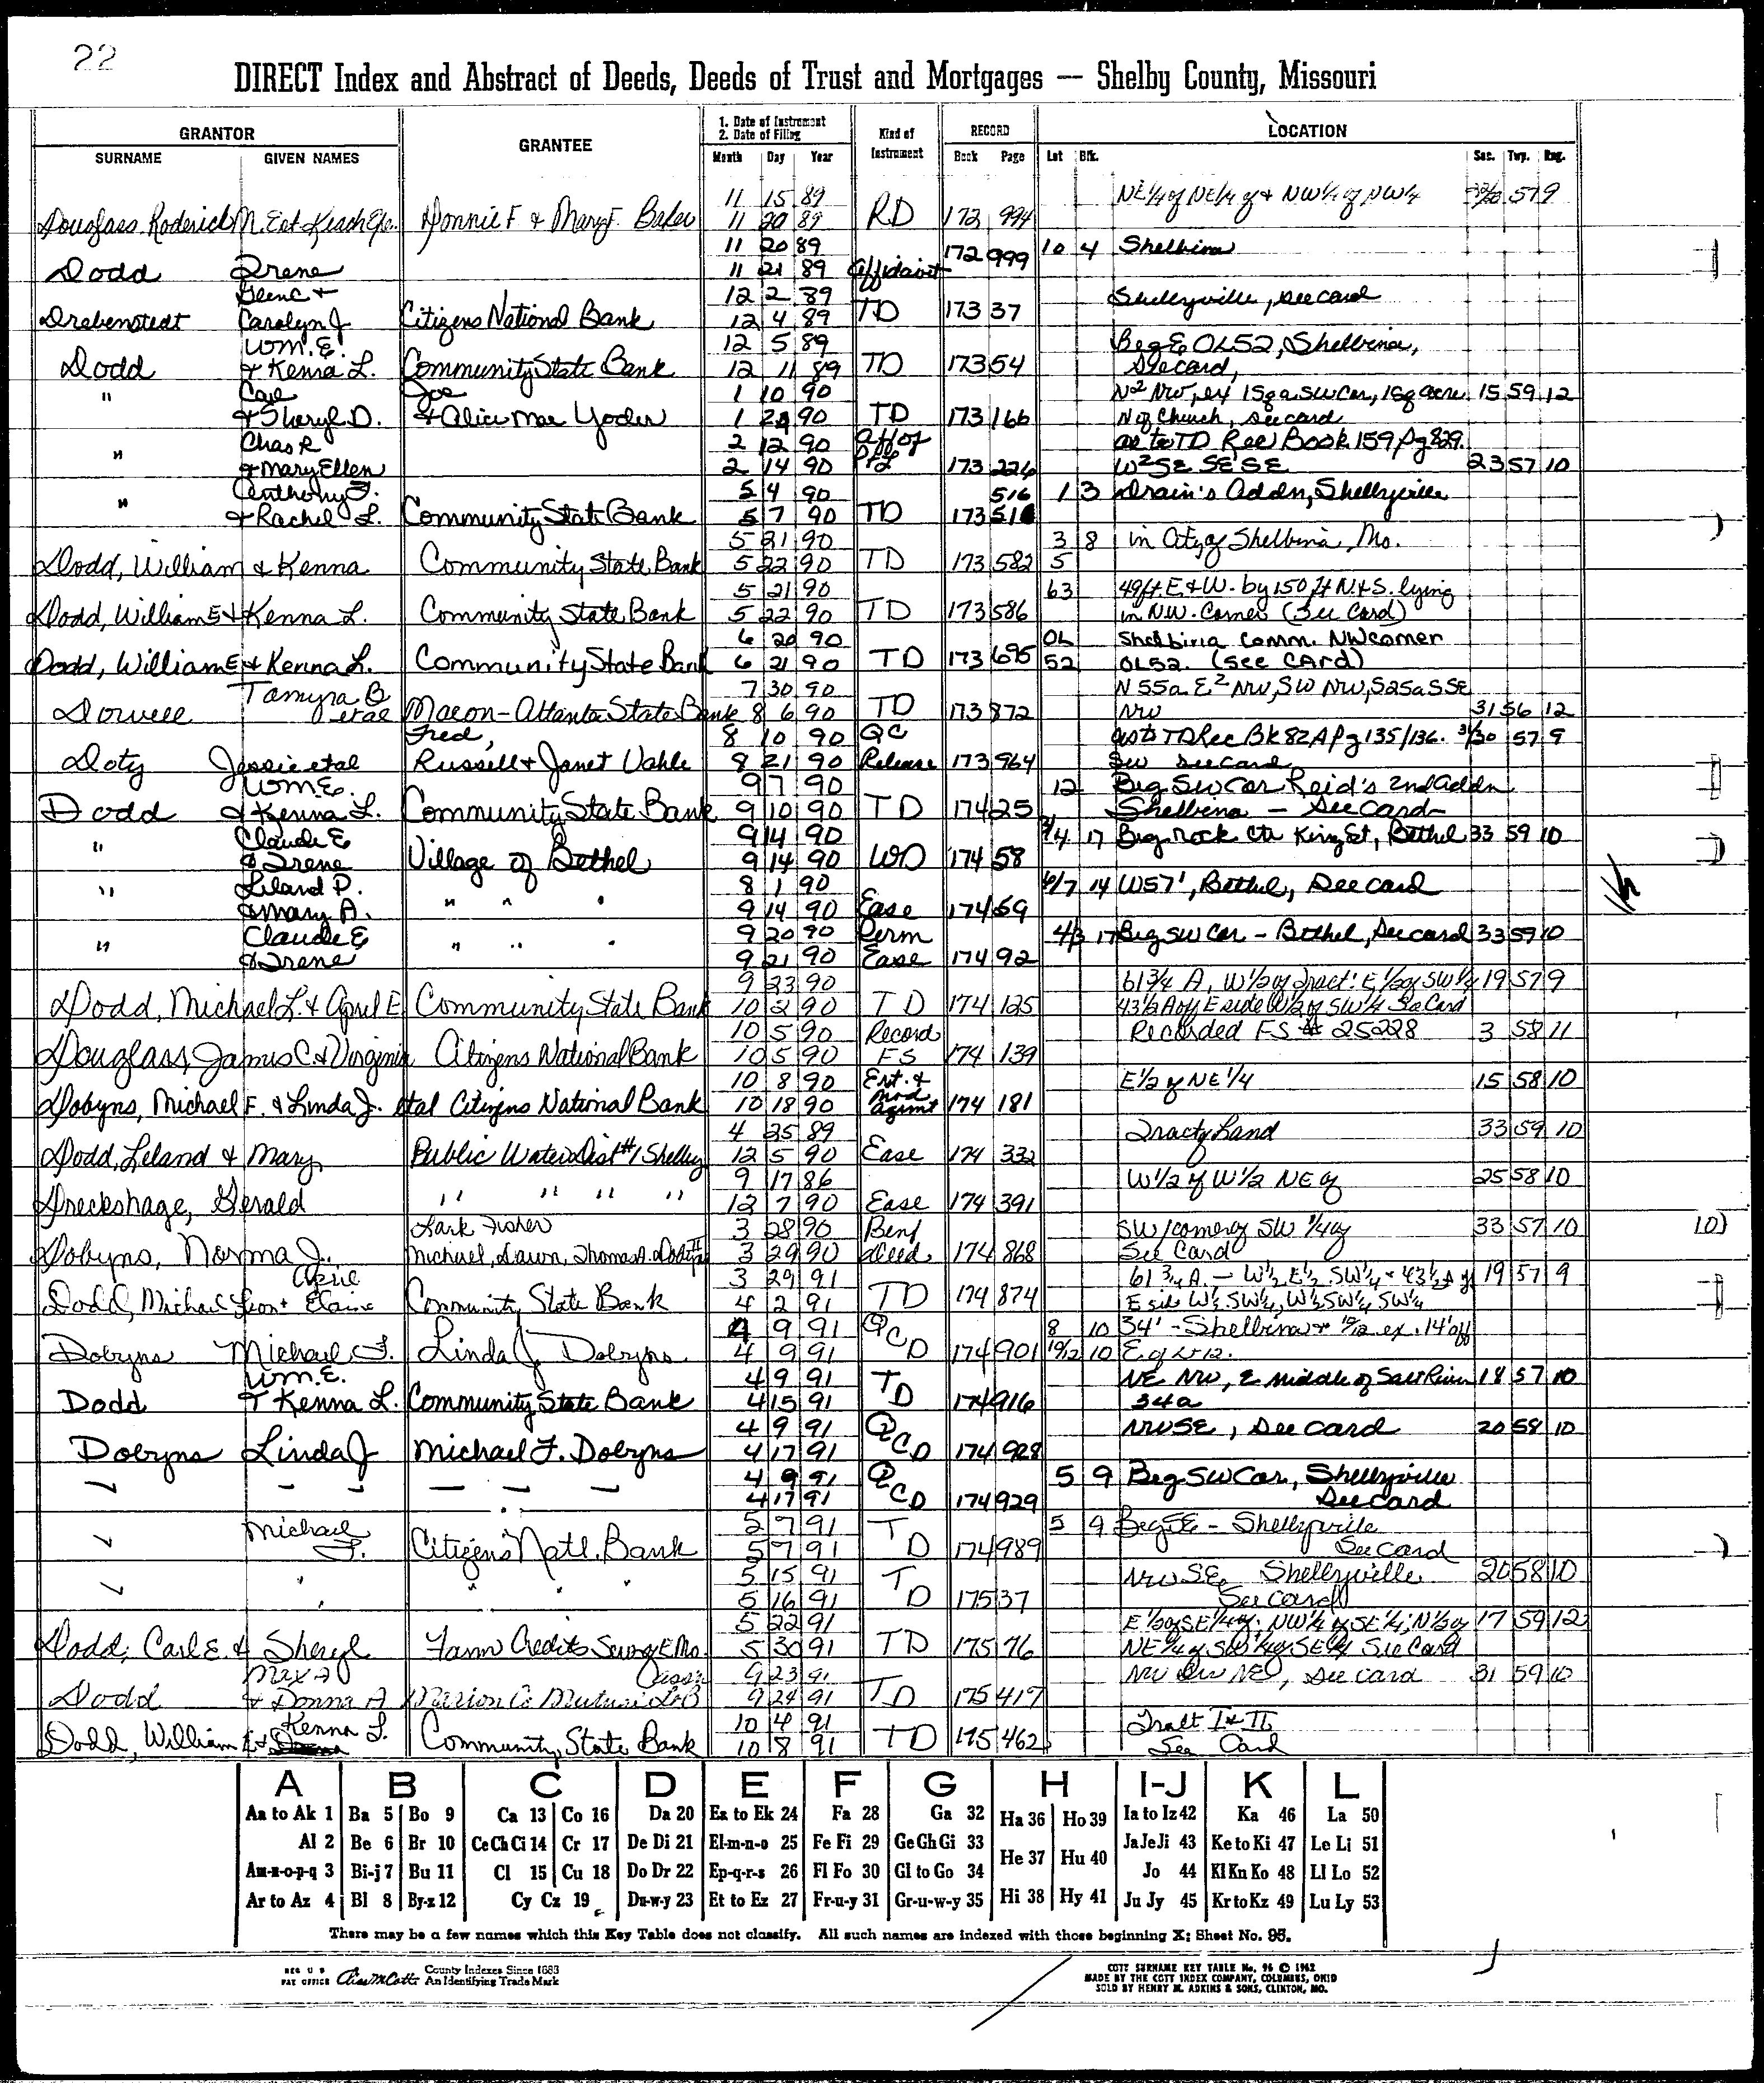 22
DIRECT Index and Abstract of Deeds, Deeds of Trust and Mortgages — Shelby County, Missouri
GRANTOR GRANTEE 1. Date of Instrument 2. Date of Filing Kind of Instrument RECORD LOCATION
SURNAME GIVEN NAMES Month Day Year Book Page Lot Blk. Sec. Twp. Rng.
11 15 89 NE 1/4 of NE 1/4 of & NW 1/4 of NW 1/4 57 9
Douglass Roderick M. Est Donnie F & Mary F. Baker 11 20 89 RD 172 994
11 20 89 10 4 Shelbina
Dodd Irene 11 21 89 Affidavit 172 999
Glenc + 12 2 89 Shelbyville, See card
Drebenstedt Carolyn J Citizens National Bank 12 4 89 TD 173 37
Wm. E. 12 5 89 Beg E OL52, Shelbina,
Dodd & Kenna L. Community State Bank 12 11 89 TD 173 54 See card,
" Carl Joe 1 10 90 N2 NW, ex 1 Sq a SW Cor, 1 Sq acre 15 59 12
& Sheryl D. & Alice Mae Yoder 1 29 90 TD 173 166 N of Church, See card
" Chas R 2 12 90 Aff of as to TD Rec Book 159 Pg 829.
& Mary Ellen 2 14 90 173 226 W2SE SESE 23 57 10
" Anthony J. 5 4 90 516 1 3 Drain's Addn, Shelbyville
& Rachel L. Community State Bank 5 7 90 TD 173 516
5 21 90 3 8 in City of Shelbina, Mo.
Dodd, William & Kenna Community State Bank 5 22 90 TD 173 582 5
5 21 90 63 49 ft E & W. by 150 ft N. & S. lying
Dodd, William E & Kenna L. Community State Bank 5 22 90 TD 173 586 in N.W. Corner (See Card)
6 20 90 OL Shelbina Comm. NW corner
Dodd, William E & Kenna L. Community State Bank 6 21 90 TD 173 695 52 OL52. (See CArd)
Tamyra B 7 30 90 N 55a E2 NW, SW NW, S25a SSE
Dowell etal Macon-Atlanta State Bank 8 6 90 TD 173 872 NW 31 56 12
Fred, 8 10 90 QC as to TD Rec Bk 82A Pg 135/136. 31/30 57 9
Doty Jessie etal Russell & Janet Vahle 8 21 90 Release 173 964 SW See card
Wm. E. 9 7 90 12 Beg SW Cor Reid's 2nd addn
Dodd & Kenna L. Community State Bank 9 10 90 TD 174 25 Shelbina — See Card
" Claude E 9 14 90 3/4 17 Beg rock Ctr King St, Bethel 33 59 10
& Irene Village of Bethel 9 14 90 WD 174 58
" Leland P. 8 1 90 6/7 14 W57', Bethel, See card
& Mary A. " " " 9 14 90 Ease 174 59
" Claude E 9 20 90 Perm 4/3 17 Beg SW Cor - Bethel, See card 33 59 10
& Irene " " " 9 21 90 Ease 174 92
9 23 90 61 3/4 A, W 1/2 of Tract: E 1/2 of SW 1/4 19 57 9
Dodd, Michael L. & April E Community State Bank 10 2 90 TD 174 125 43 1/2 A of E side W 1/2 of SW 1/4 See Card
10 5 90 Record Recorded FS # 25228 3 58 11
Douglass, James C & Virginia Citizens National Bank 10 5 90 FS 174 139
10 8 90 Ext. & E 1/2 of NE 1/4 15 58 10
Dobyns, Michael F. & Linda J. etal Citizens National Bank 10 18 90 Mod Agmt 174 181
4 25 89 Tract of Land 33 59 10
Dodd, Leland & Mary Public Water Dist #1 Shelby 12 5 90 Ease 174 332
9 17 86 W 1/2 of W 1/2 NE of 25 58 10
Dreckshage, Gerald " " " " 12 7 90 Ease 174 391
Lark Fisher 3 28 90 Benf SW/corner of SW 1/4 of 33 57 10
Dobyns, Norma J. Michael, Dawn, Thomas A. 3 29 90 deed 174 868 See Card
April 3 29 91 61 3/4 A. — W 1/2 E 1/2 SW 1/4 & 43 1/2 A of 19 57 9
Dodd, Michael Leon & Elaine Community State Bank 4 2 91 TD 174 874 E side W 1/2 SW 1/4, W 1/2 SW 1/4 SW 1/4
4 9 91 QCD 8 10 34' - Shelbina & 10/12 ex. 14' off
Dobyns Michael F. Linda J. Dobyns 4 9 91 174 901 10/12 10 E. of Lt 12.
Wm. E. 4 9 91 TD NE NW, E middle of Salt River 18 57 10
Dodd & Kenna L. Community State Bank 4 15 91 174 916 34a
4 9 91 QCD NWSE, See card 20 58 10
Dobyns Linda J Michael F. Dobyns 4 17 91 174 928
4 9 91 QCD 5 9 Beg SW Cor, Shelbyville
4 17 91 174 929 See card
Michael 5 7 91 TD 5 9 Beg SE - Shelbyville
F. Citizens Natl. Bank 5 7 91 174 989 See Card
5 15 91 TD NW SE, Shelbyville 20 58 10
" " " " 5 16 91 175 37 See Card
5 22 91 E 1/2 of SE 1/4 of: NW 1/4 of SE 1/4; N 1/2 of 17 59 12
Dodd, Carl E. & Sheryl Farm Credit Serv of E Mo. 5 30 91 TD 175 76 NE 1/4 of SW 1/4 of SE 1/4 See Card
Max J Ass'n 9 23 91 NW NE, See card 31 59 10
Dodd & Donna A Marion Co Mutual 9 24 91 TD 175 417
Kenna L. 10 4 91 Tract I & II
Dodd, William E & Community State Bank 10 8 91 TD 175 462 See Card
A B C D E F G H I-J K L
Aa to Ak 1 Ba 5 Bo 9 Ca 13 Co 16 Da 20 Ea to Ek 24 Fa 28 Ga 32 Ha 36 Ho 39 Ia to Iz 42 Ka 46 La 50
Al 2 Be 6 Br 10 Ce Ch Ci 14 Cr 17 De Di 21 El-m-n-o 25 Fe Fi 29 Ge Gh Gi 33 He 37 Hu 40 Ja Je Ji 43 Ke to Ki 47 Le Li 51
Am-n-o-p-q 3 Bi-j 7 Bu 11 Cl 15 Cu 18 Do Dr 22 Ep-q-r-s 26 Fl Fo 30 Gl to Go 34 Jo 44 Kl Kn Ko 48 Ll Lo 52
Ar to Az 4 Bl 8 By-z 12 Cy Cz 19 Du-w-y 23 Et to Ez 27 Fr-u-y 31 Gr-u-w-y 35 Hi 38 Hy 41 Ju Jy 45 Kr to Kz 49 Lu Ly 53
There may be a few names which this Key Table does not classify. All such names are indexed with those beginning X: Sheet No. 95.
REG U S PAT OFFICE County Indexes Since 1883 An Identifying Trade Mark
COTT SURNAME KEY TABLE No. 96 © 1962
MADE BY THE COTT INDEX COMPANY, COLUMBUS, OHIO
SOLD BY HENRY M. ADKINS & SONS, CLINTON, MO.